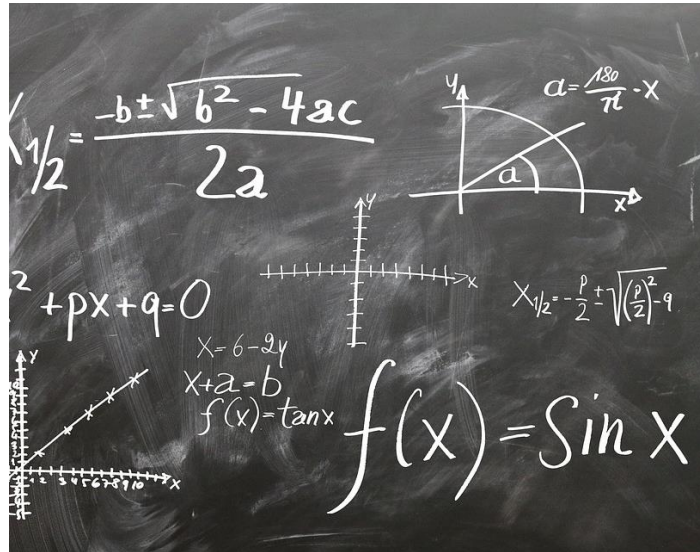 X1/2 = -b ± √b² - 4ac / 2a
y
a = 180/π · x
a
x
y
x
² + px + q = 0
X1/2 = -p/2 ± √(p/2)² - q
x = 6 - 2y
x + a = b
f(x) = tan x
f(x) = Sin x
y
1 2 3 4 5 6 7 8 9 10
x